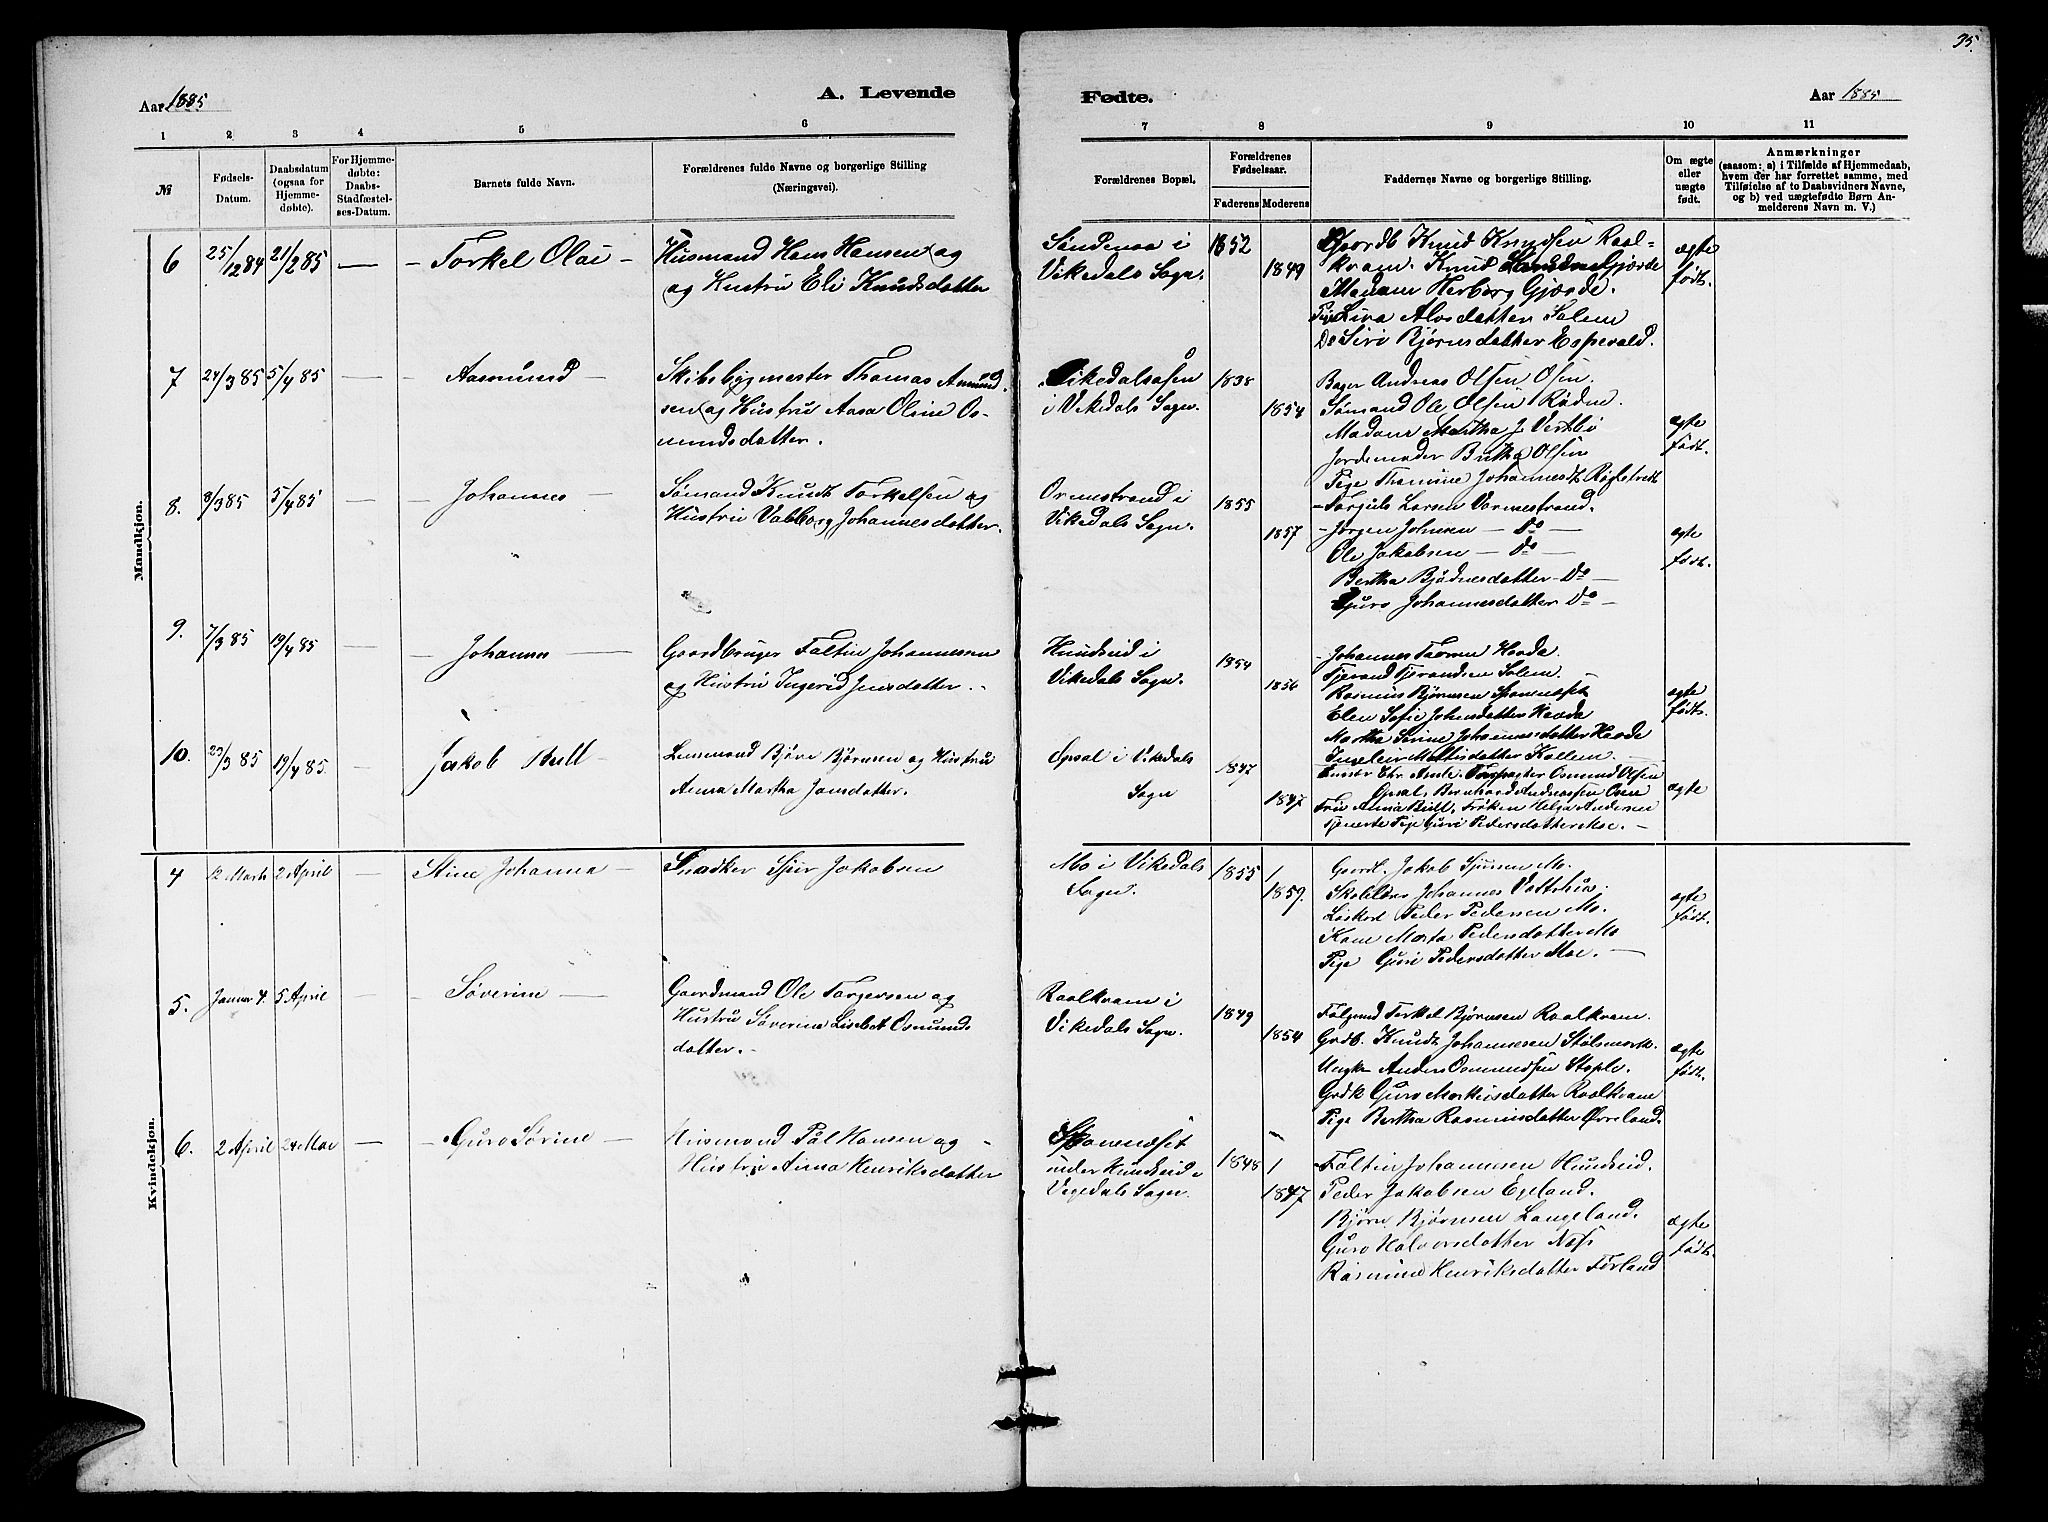 35.
Aar 1885
A. Levende
Fødte.
Aar 1885
1 2 3 4 5 6 7 8 9 10 11
№
Fødsels-
Datum.
Daabsdatum
(ogsaa for
Hjemme-
døbte).
For Hjemme-
døbte:
Daabs-
Stadfæstel-
ses-Datum.
Barnets fulde Navn.
Forældrenes fulde Navne og borgerlige Stilling
(Næringsvei).
Forældrenes Bopæl.
Forældrenes
Fødselsaar.
Faderens Moderens
Faddernes Navne og borgerlige Stilling.
Om ægte
eller
uægte
født.
Anmærkninger
(saasom: a) i Tilfælde af Hjemmedaab,
hvem der har forrettet samme, med
Tilføielse af to Daabsvidners Navne,
og b) ved uægtefødte Børn An-
melderens Navn m. V.)
Mandkjøn.
6 25/12 84 21/2 85 — Torkel Olai —
Husmand Hans Hansen og
og Hustru Eli Knudsdatter
Søndenaa i
Vikedals Sogn.
1852
1849
Gaardb Knud Knudsen Raal-
kvam. Knud Gjærde
Madam Herborg Gjærde.
Pige Siva Alvsdatter Solem
Do Siri Bjørnsdatter Espevold.
ægte
født.
7 24/3 85 5/4 85 — — Aasmund —
Skibsbygmester Thomas Amund-
sen og Hustru Aasa Oline Os-
mundsdatter.
Vikedalsøsen
i Vikedals Sogn.
1838
1854
Bager Andreas Olsen Øsen.
Sømand Ole Olsen Rødne.
Madam Martha J. Vestbø
Jordemoder Bertha Olsen
Pige Thomine Johannesdt
ægte
født.
8. 3/3 85 5/4 85 — — Johannes —
Sømand Knudt Torkelsen og
Hustru Valborg Johannesdatter.
Ormestrand i
Vikedals Sogn.
1855
1857
Torjuls Larsen Vormestrand.
Jørgen Johnsen — Do —
Ole Jakobsen — Do —
Bertha Bjødnesdatter - Do —
Guro Johannesdatter Do —
ægte
født.
9. 7/3 85 19/4 85 — — Johannes —
Gaardbruger Foltin Johannesen
og Hustru Ingerid Jensdatter.
Hundseid i
Vikedals Sogn.
1854
1856
Johannes Hovda.
Tjerand Tjerandsen Solem.
Rasmus Bjørnsen Sponnæset
Elen Sofie Johnsdatter Hovda
Martha Serine Johannesdatter Hovde
ægte
født.
10. 23/3 85 19/4 85. — Jakob Bull
Lensmand Bjørn Bjørnsen og Hustru
Anna Martha Jansdatter.
Opsal i Vikedals
Sogn
1847
1847
Ingleiv Mattisdatter Kallem
Osmund Olsen
Opsal, Bernhard Andreassen Øsen
Fru Anna Bull, Frøken Helga Andersen
Tjeneste Pige Guri Pedersdatter Moe. —
ægte
Kvindekjøn.
4 12 Marts 2 April — — Stine Johanna —
Snedker Sjur Jakobsen
Mo i Vikedals
Sogn.
1855
1859.
Gaardb. Jakob Sjursen Mo.
Skolelærer Johannes Vatshus.
Løskarl Peder Pedersen Mo.
Kone Marta Pedersdatter Mo
Pige Guri Pedersdatter Moe. —
ægte
født.
5. Januar 4. 5 April — — Søverine —
Gaardmand Ole Torgersen og
Hustru Søverine Lisbet Osmunds
datter.
Raalkvam i
Vikedals Sogn.
1849
1854
Følgmd Torkel Bjørnsen Raalkvam.
Grdb. Knudt Johannesen Stølsmark.
Ungk. Anders Osmundsen Stople.
Grdk Guro Markusdatter Raalkvam
Pige Bertha Rasmusdatter Øvreland.
ægte
født.
6. 2 April 24 Mai — — Guro Sørine —
Husmand Pål Hansen og
Hustru Anna Henriksdatter
Sponnæset
under Hundseid i
Vegedals Sogn.
1848
1847
Foltin Johannesen Hundseid.
Peder Jakobsen Egeland.
Bjørn Bjørnsen Langeland.
Guro Halvorsdatter Næss
Rasmine Henriksdatter Førland
ægte
født.